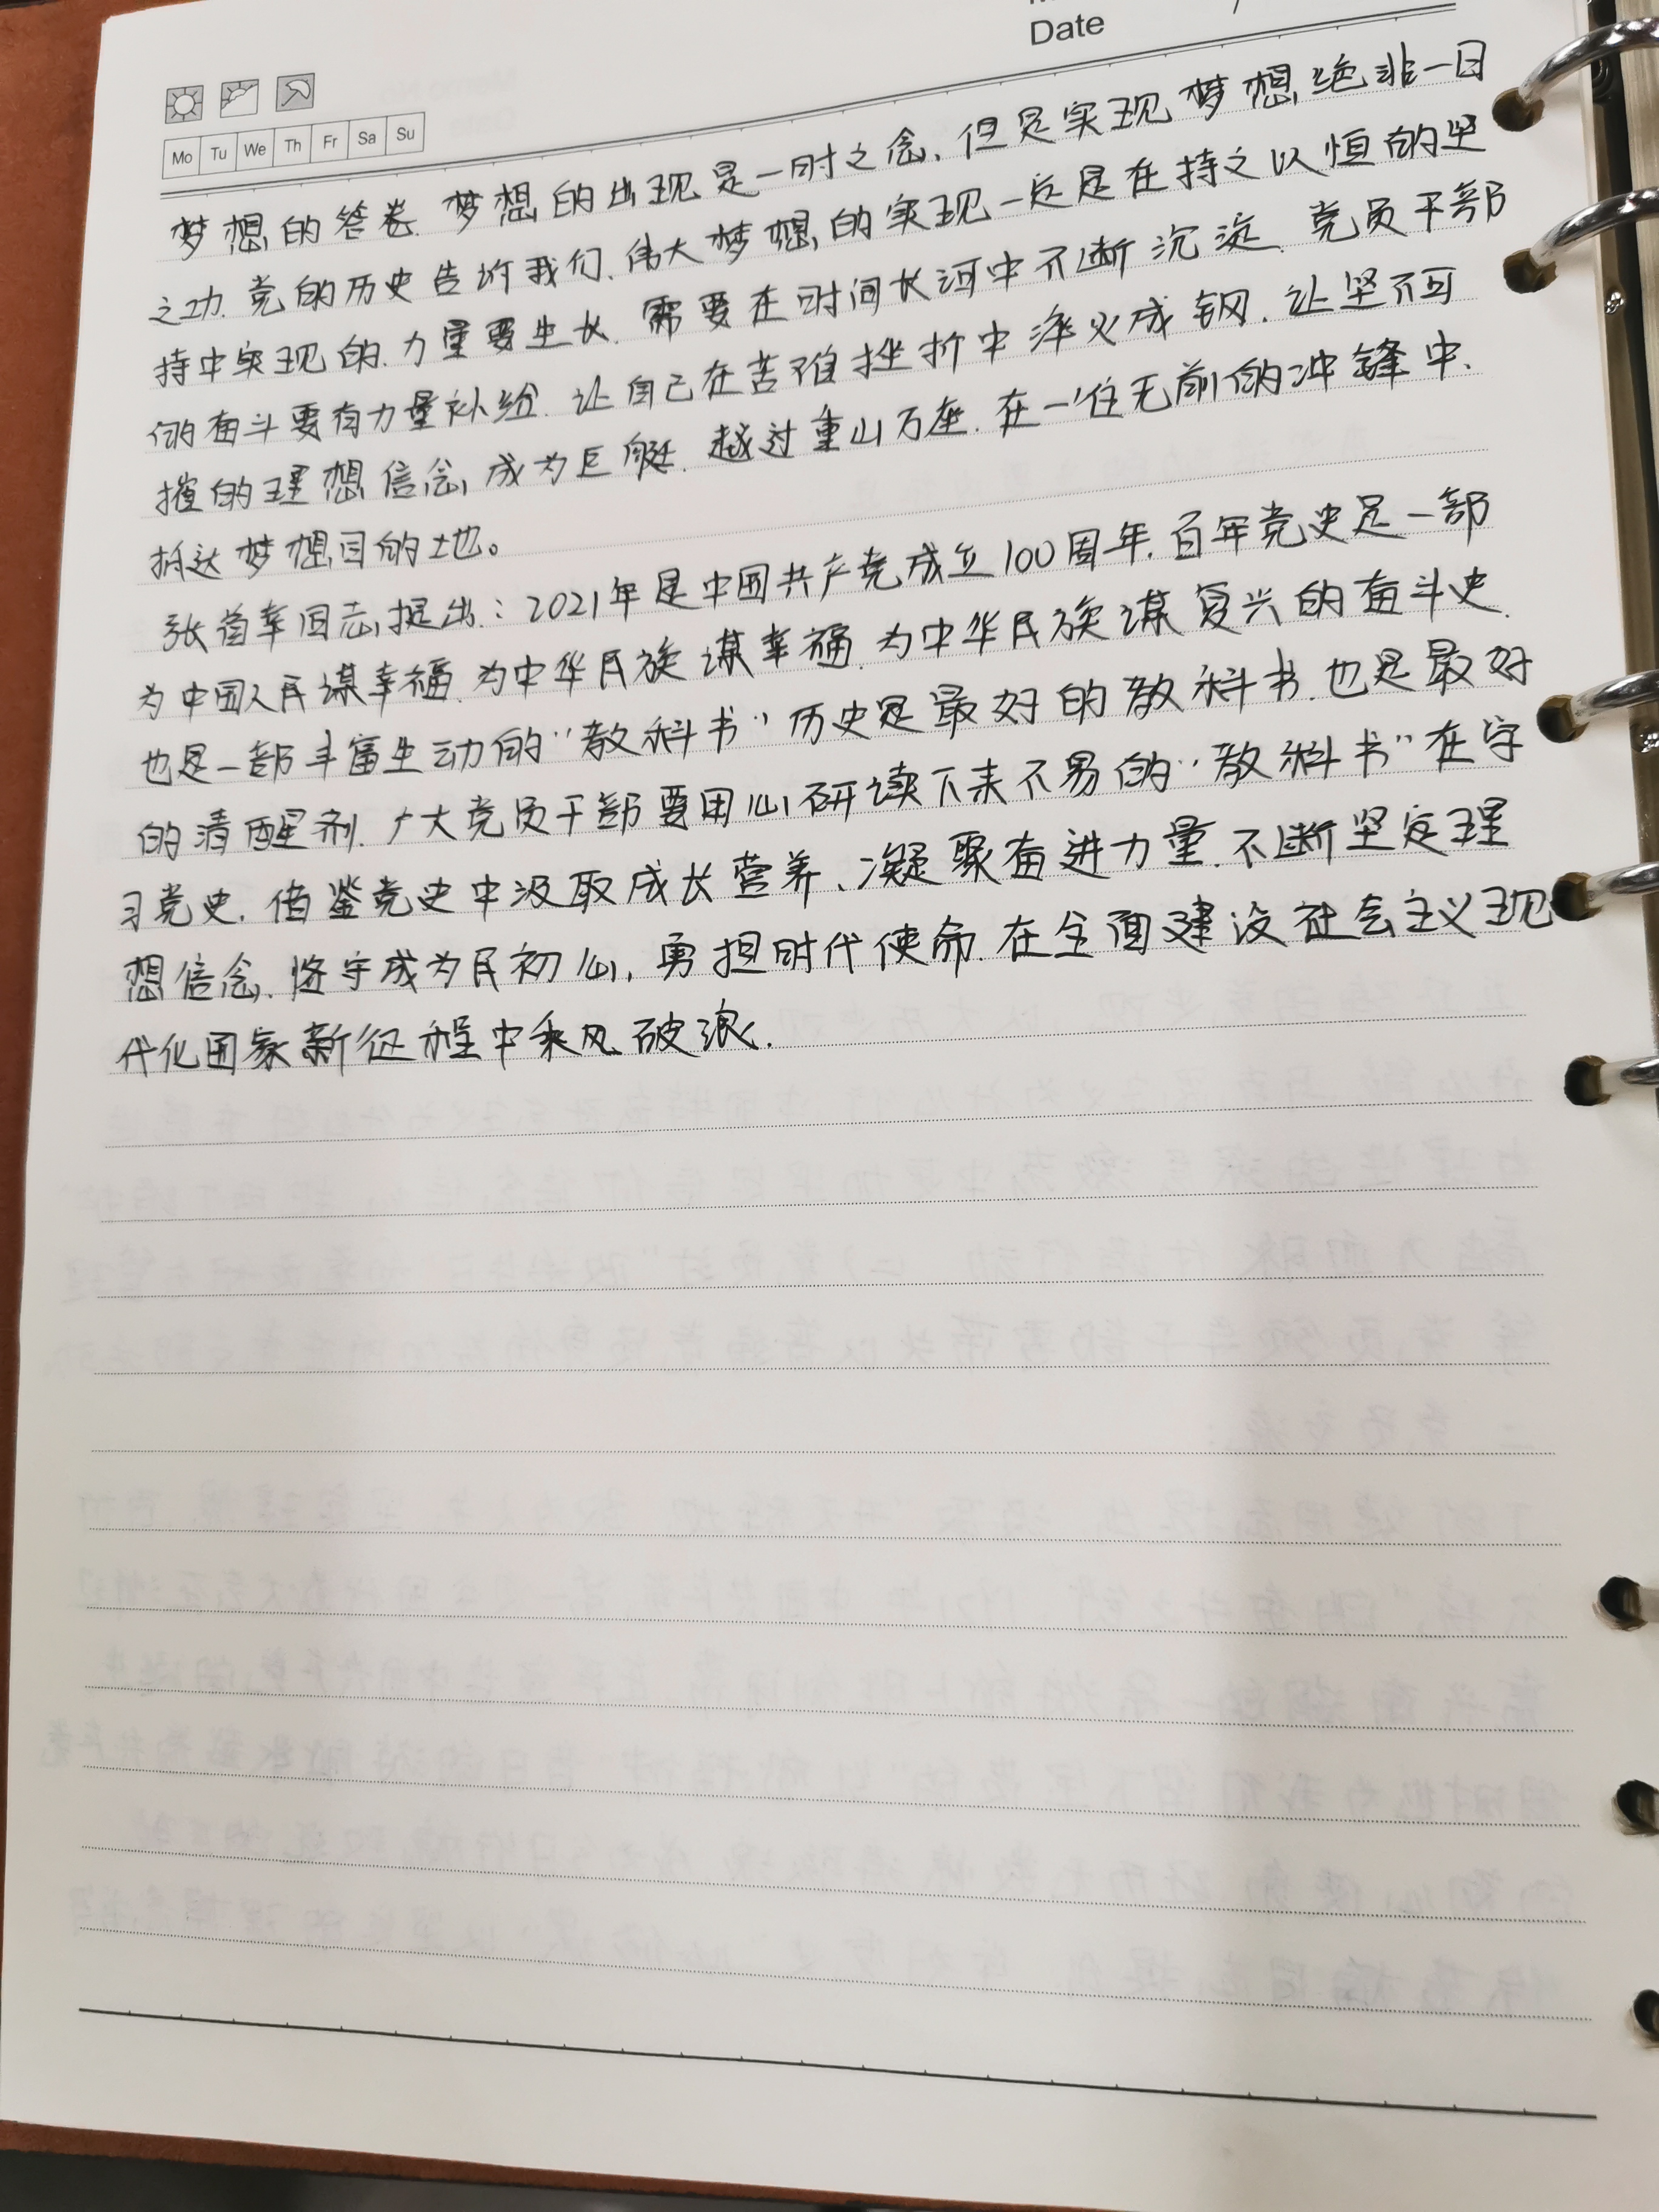 Date
Mo Tu We Th Fr Sa Su
梦想的答卷.梦想的出现是一时之念、但是实现梦想绝非一日
之功.党的历史告诉我们、伟大梦想的实现一定是在持之以恒的坚
持中实现的.力量要生长.需要在时间长河中不断沉淀.党员干部
的奋斗要有力量补给.让自己在苦难挫折中淬火成钢.让坚不可
摧的理想信念成为巨艇.越过重山万座.在一往无前的冲锋中、
抵达梦想目的地。
张首幸同志提出:2021年是中国共产党成立100周年.百年党史是一部
为中国人民谋幸福.为中华民族谋幸福.为中华民族谋复兴的奋斗史.
也是一部丰富生动的“教科书”历史是最好的教科书.也是最好
的清醒剂.广大党员干部要用心研读下来不易的“教科书”在学
习党史.借鉴党史中汲取成长营养、凝聚奋进力量.不断坚定理
想信念.恪守成为民初心,勇担时代使命.在全面建设社会主义现
代化国家新征程中乘风破浪.